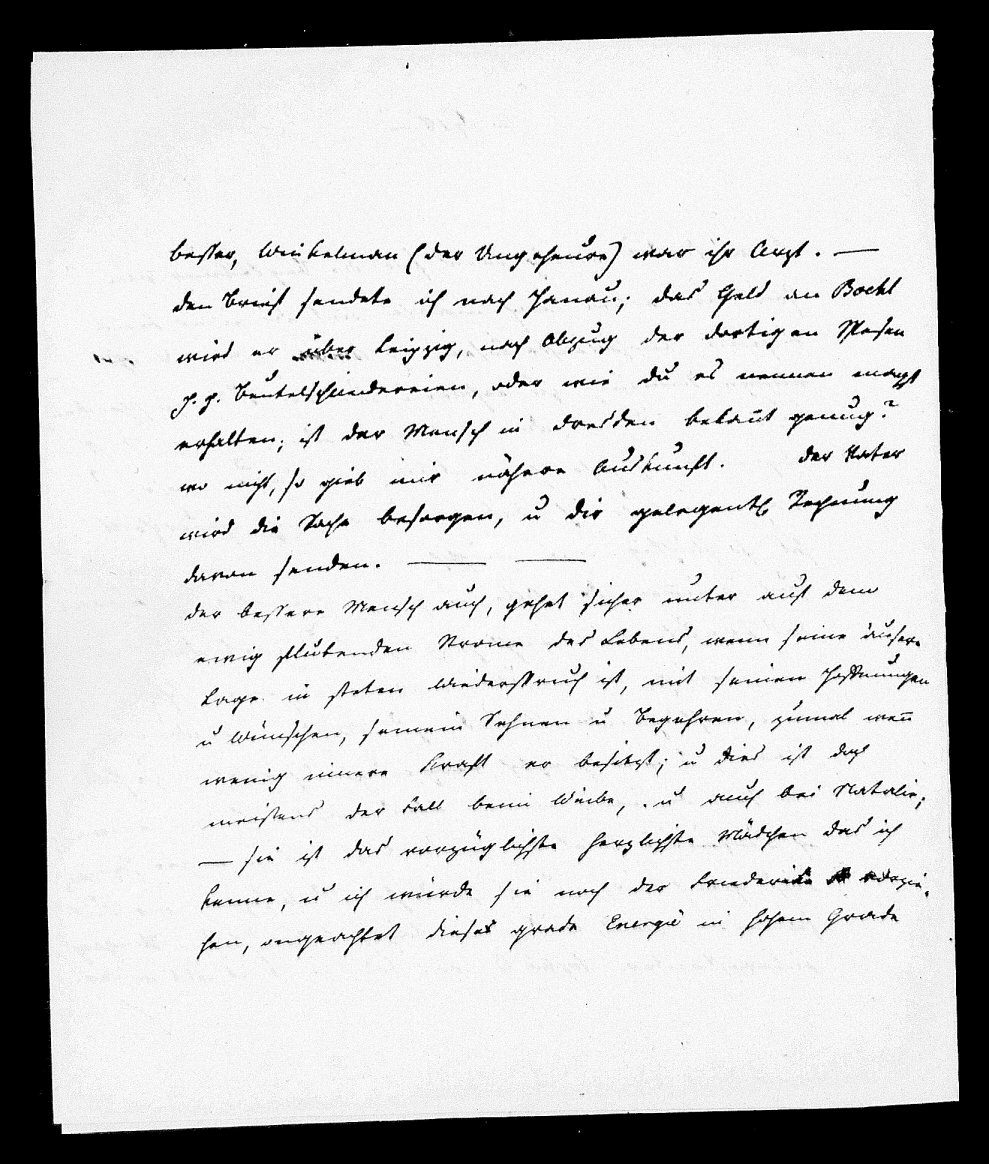 besser, Winkelman (der Ungeheure) war ihr Arzt. —
den Brief sendete ich nach Hanau; das Geld an Boekl
wird er über Leipzig, nach Abzug der dortigen Mesen
p. p. Beutelschneidereien, oder wie du es nennen magst
erhalten; ist der Mensch in Dresden bekant genug?
wo nicht, so gieb mir nähere Auskunft. der Vater
wird die Sache besorgen, u dir gelegentl Rechnung
davon senden. — —
der bessere Mensch auch, gehet sicher unter auf dem
ewig fluthenden Strome des Lebens, wenn seine äusere
Lage in steten Wiederspruch ist, mit seinen Hoffnungen
u Wünschen, seinem Sehnen u Begehren, zumal wen
wenig innere Kraft er besitzt; u dies ist das
meistens der Fall beim Weibe, u auch bei Natalie;
— sie ist das vorzüglichste herzlichste Mädchen das ich
kenne, u ich würde sie noch der Friederike vorzie-
hen, ongeachtet diese grade Energie in hohem Grade